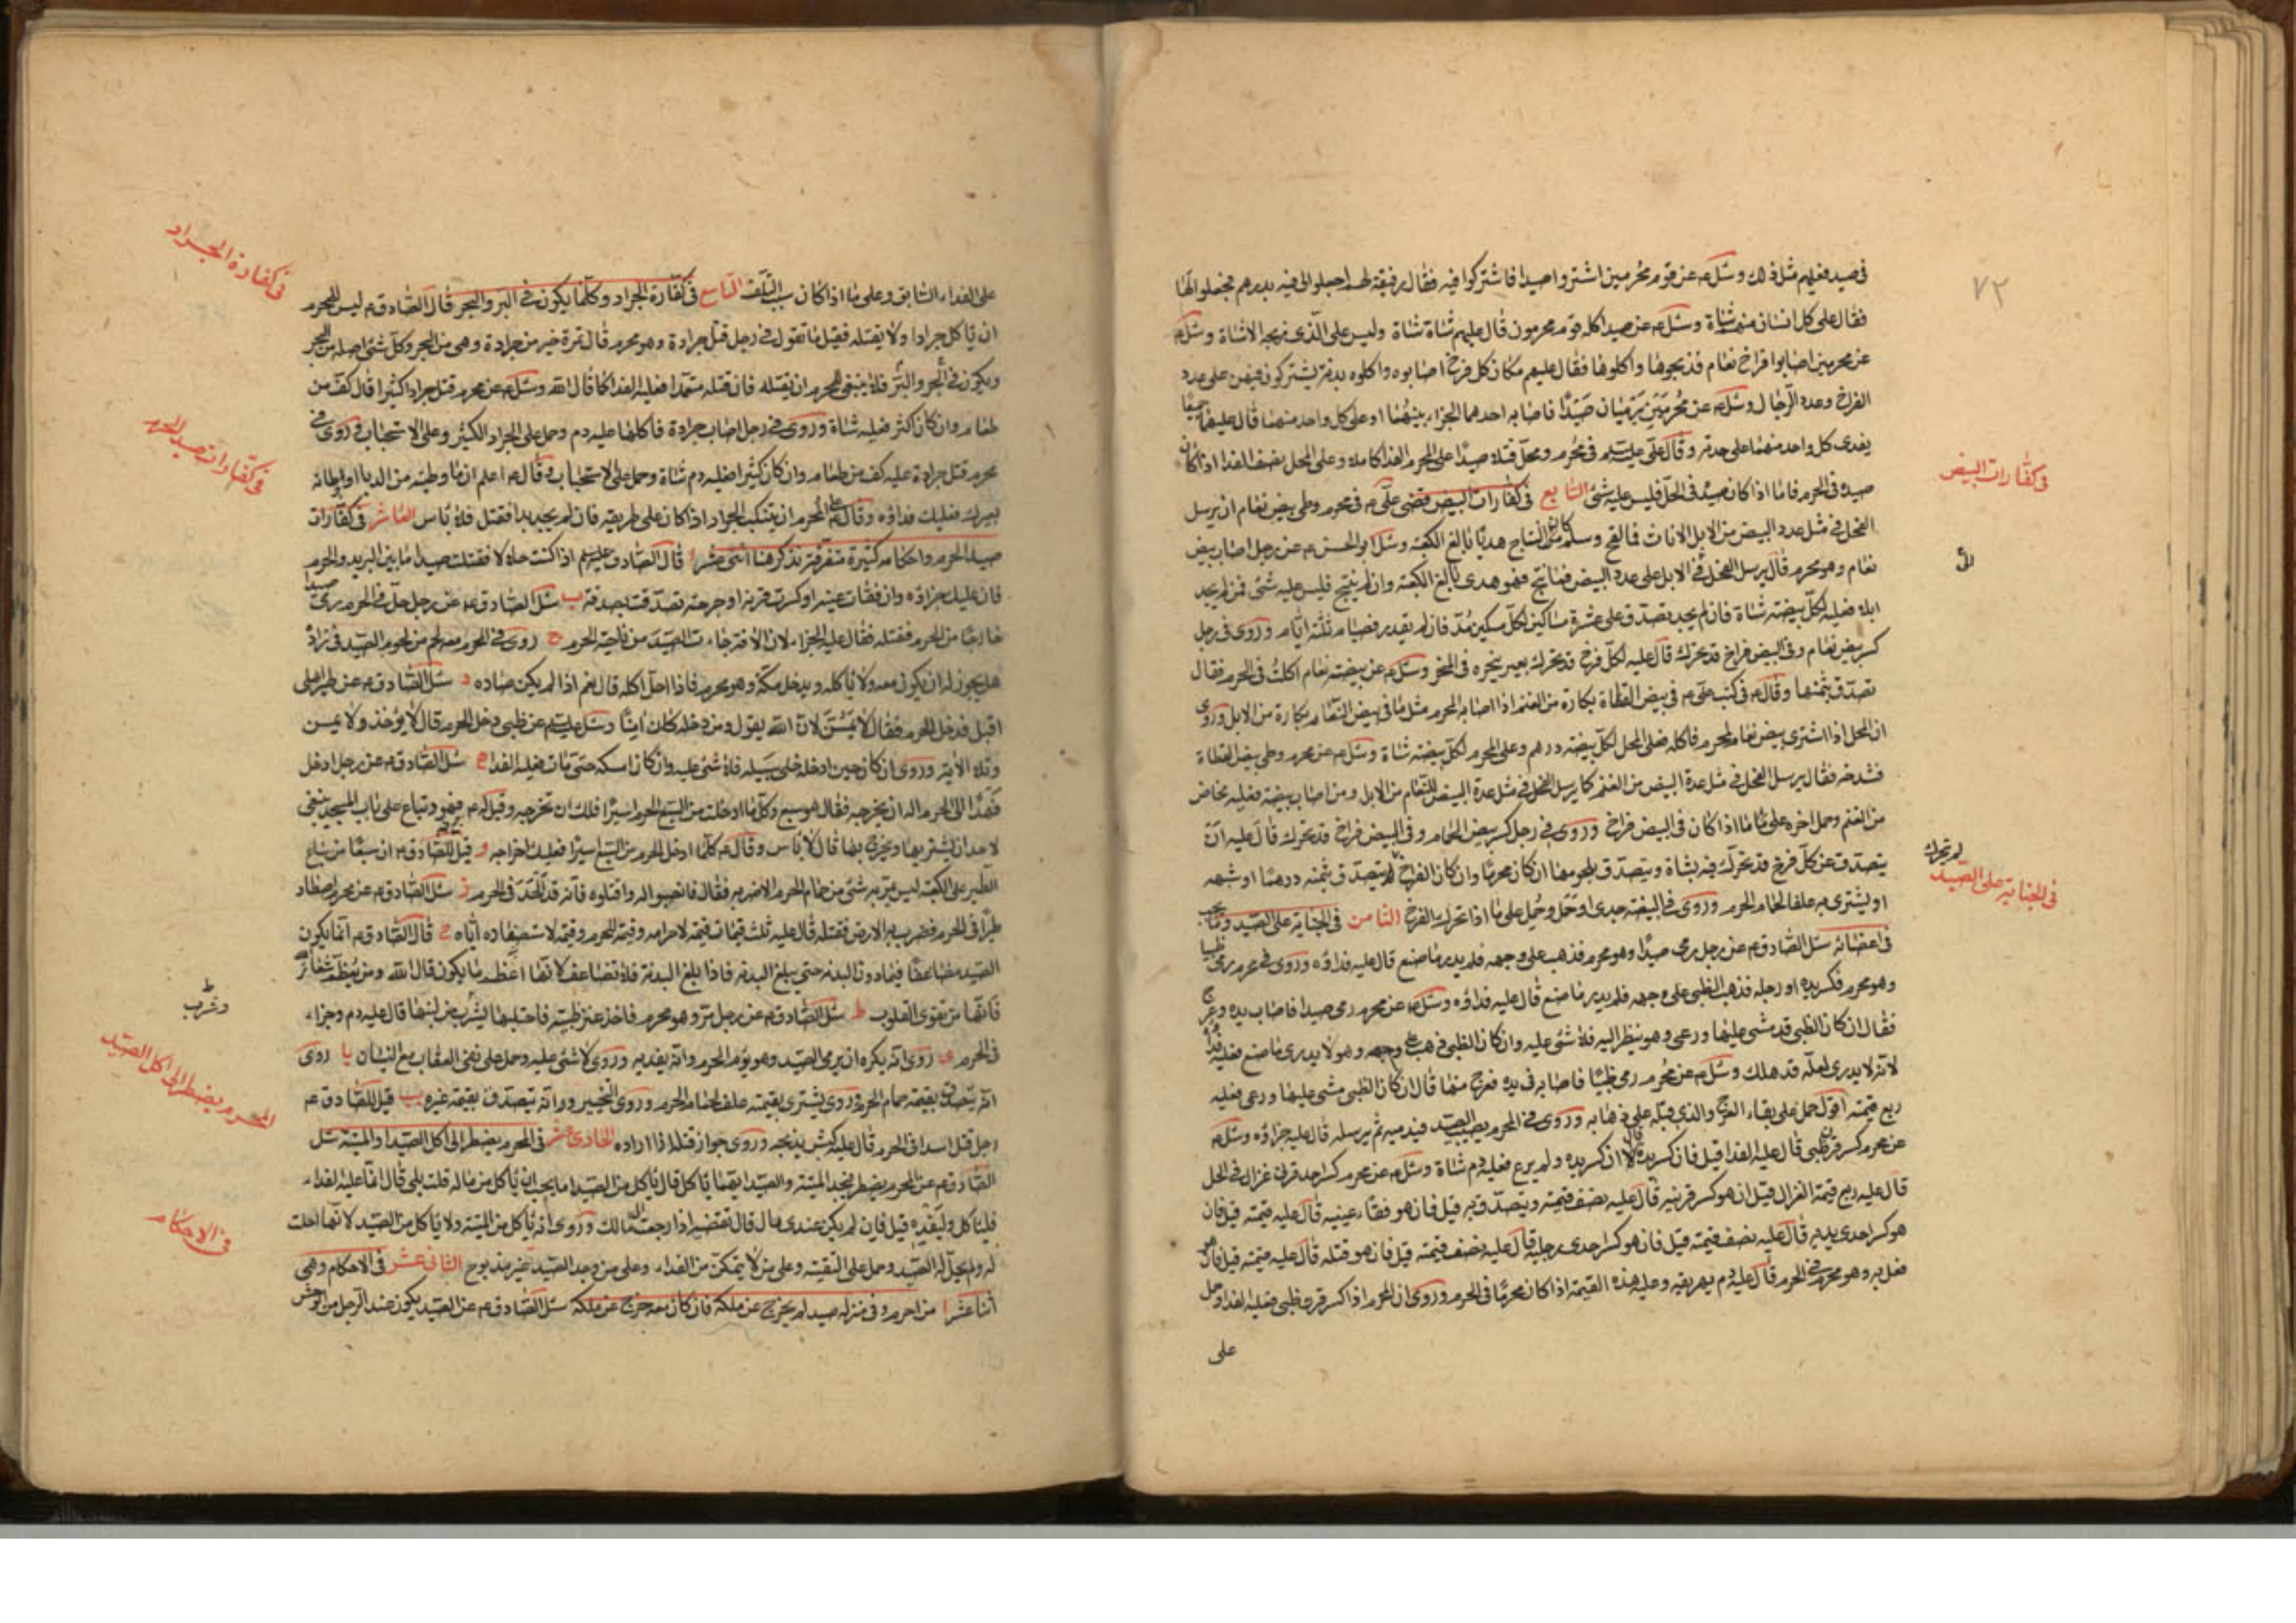 ٧٢
في صيد فعليهم مثل ذلك وسئل ع عن قوم محرمين اشتروا صيدا فاشتركوا فيه فقال رفيقة لهم اجعلوا لي فيه بدرهم فجعلوا لها
فقال على كل انسان منهم شاة وسئل ع عن صيد اكله قوم محرمون قال عليهم شاة شاة وليس على الذي ذبحه الا شاة وسئل ع
عن محرمين اصابوا فراخ نعام فذبحوها واكلوها فقال عليهم مكان كل فرخ اصابوه واكلوه بدنة يشتركون فيهن على عدد
الفراخ وعدد الرجال وسئل ع عن محرمين يرميان صيدا فاصابه احدهما الجزاء بينهما او على كل واحد منهما قال عليهما جميعا
يفدى كل واحد منهما على حدته وقال علي عليه السلم في محرم ومحل قتلا صيدا على المحرم الفدا كاملا وعلى المحل نصف الفدا اذا كان
صيده في الحرم فاما اذا كان صيده في الحل فليس عليه شئ السابع في كفارات البيض قضى علي ع في محرم وطى بيض نعام ان يرسل
الفحل في مثل عدد البيض من الابل الاناث فما لقح وسلم كان النتاج هديا بالغ الكعبة وسئل ابو الحسن ع عن رجل اصاب بيض
نعام وهو محرم قال يرسل الفحل في الابل على عدد البيض فما نتج فهو هدى بالغ الكعبة وان لم ينتج فليس عليه شئ فمن لم يجد
ابلا فعليه لكل بيضة شاة فان لم يجد تصدق على عشرة مساكين لكل مسكين مد فان لم يقدر فصيام ثلثة ايام وروى في رجل
كسر بيض نعام وفي البيض فراخ قد تحرك قال عليه لكل فرخ قد تحرك بعير ينحره في المنحر وسئل ع عن بيضة نعام اكلت في الحرم فقال
تصدق بثمنها وقال ع في كتب علي ع في بيض القطاة بكارة من الغنم اذا اصابه المحرم مثل ما في بيض النعام بكارة من الابل وروى
ان المحل اذا اشترى بيض نعام لمحرم فاكله فعلى المحل لكل بيضة درهم وعلى المحرم لكل بيضة شاة وسئل ع عن محرم وطى بيض القطاة
فشدخه فقال يرسل الفحل في مثل عدة البيض من الغنم كما يرسل الفحل في مثل عدة البيض للنعام من الابل ومن اصاب بيضة فعليه مخاض
من الغنم وحمل اخره على ما اذا كان في البيض فراخ وروى في رجل كسر بيض الحمام وفي البيض فراخ قد تحرك قال عليه ان
يتصدق عن كل فرخ قد تحرك فيه بشاة ويتصدق بلحومها ان كان محرما وان كان الفراخ لم يتصدق بثمنه درهما او شبهه
او يشترى به علفا لحمام الحرم وروى في البيضة جدى او حمل وحمل على ما اذا تحرك الفرخ الثامن في الجناية على الصيد وما يجب
في اعضائه سئل الصادق ع عن رجل رمى صيدا وهو محرم فذهب على وجهه فلم يدر ما صنع قال عليه فداؤه وروى في محرم رمى ظبيا
وهو محرم فكسر يده او رجله فذهب الظبي على وجهه فلم يدر ما صنع قال عليه فداؤه وسئل ع عن محرم رمى صيدا فاصاب يده وعرج
فقال ان كان الظبي قد مشى عليها ورعى وهو ينظر اليه فلا شئ عليه وان كان الظبي ذهب على وجهه وهو لا يدرى ما صنع فعليه فداؤه
لانه لا يدرى لعله قد هلك وسئل ع عن محرم رمى ظبيا فاصابه في يده فعرج منها قال ان كان الظبي مشى عليها ورعى فعليه
ربع قيمته اقول حمل على بقاء العرج والذي قبله على ذهابه وروى في المحرم يصيب الصيد فيدميه ثم يرسله قال عليه جزاؤه وسئل ع
عن محرم كسر قرن ظبي قال عليه الفدا قيل فان كسر يده قال ان كسر يده ولم يرع فعليه دم شاة وسئل ع عن محرم كسر احد قرني غزال في الحل
قال عليه ربع قيمة الغزال قيل ان هو كسر قرنيه قال عليه نصف قيمته ويتصدق به قيل فان هو فقاء عينيه قال عليه قيمته قيل فان
هو كسر احدى يديه قال عليه نصف قيمته قيل فان هو كسر احدى رجليه قال عليه نصف قيمته قيل فان هو قتله قال عليه قيمته قيل فان هو
فعل به وهو محرم في الحرم قال عليه دم يهريقه وعليه هذه القيمة اذا كان محرما في الحرم وروى ان المحرم اذا كسر قرن ظبي فعليه الفدا وحمل
على
في كفارات البيض
لم تحرك
في الجناية على الصيد
على الفداء السابق وعلى ما اذا كان سبب التلف التاسع في كفارة الجراد وكلما يكون في البر والبحر قال الصادق ع ليس للمحرم
ان ياكل جرادا ولا يقتله فقيل ما تقول في رجل قتل جرادة وهو محرم قال تمرة خير من جرادة وهي من البحر وكل شئ اصله من البحر
ويكون في البحر والبر فلا ينبغي للمحرم ان يقتله فان قتله متعمدا فعليه الفدا كما قال الله وسئل ع عن محرم قتل جرادا كثيرا قال كف من
طعام وان كان اكثر فعليه شاة وروى في رجل اصاب جرادة فاكلها عليه دم وحمل على الجراد الكثير وعلى الاستحباب وروى في
محرم قتل جرادة عليه كف من طعام وان كان كثيرا فعليه دم شاة وحمل على الاستحباب وقال ع اعلم ان ما وطئته من الدبا او اوطاته
بعيرك فعليك فداؤه وقال ع على المحرم ان يتنكب الجراد اذا كان على طريقه فان لم يجد بدا فقتل فلا باس العاشر في كفارات
صيد الحرم واحكامه كثيرة متفرقة نذكر هنا اثنى عشر ا قال الصادق عليه السلم اذا كنت حلالا فقتلت صيدا ما بين البريد والحرم
فان عليك جزاؤه وان فقات عينه او كسرت قرنه او جرحته تصدقت بصدقة ب سئل الصادق ع عن رجل حل في الحرم رمى صيدا
خارجا من الحرم فقتله فقال عليه الجزاء لان الافة جاءت الصيد من ناحية الحرم ج روى في المحرم معه لحم من لحوم الصيد في زاده
هل يجوز له ان يكون معه ولا ياكله ويدخل مكة وهو محرم فاذا احل اكله قال نعم اذا لم يكن صاده د سئل الصادق ع عن طير اهلى
اقبل فدخل الحرم فقال لا يمس لان الله يقول ومن دخله كان امنا وسئل عليه السلم عن ظبي دخل الحرم قال لا يؤخذ ولا يمس
وتلا الاية وروى ان كان حين ادخله خلى سبيله فلا شئ عليه وان كان امسكه حتى مات فعليه الفدا ه سئل الصادق ع عن رجل ادخل
فهدا الى الحرم اله ان يخرجه فقال هو سبع وكل ما ادخلت من السبع الحرم اسيرا فلك ان تخرجه وقيل له ع فهود تباع على باب المسجد ينبغي
لاحد ان يشتريها ويخرج بها قال لا باس وقال ع كلما ادخل الحرم من السبع اسيرا فعليك اخراجه و قيل للصادق ع ان سبعا من سباع
الطير على الكعبة ليس يمر به شئ من حمام الحرم الا ضربه فقال فانصبوا له واقتلوه فانه قد الحد في الحرم ز سئل الصادق ع عن محرم اصطاد
طيرا في الحرم فضرب به الارض فقتله قال عليه ثلث قيمات قيمة لاحرامه وقيمة للحرم وقيمة لاستصغاره اياه ح قال الصادق ع انما يكون
الصيد مضاعفا فيما دون البدنة حتى يبلغ البدنة فاذا بلغ البدنة فلا تضاعف لانها اعظم ما يكون قال الله ومن يعظم شعائر الله
فانها من تقوى القلوب ط سئل الصادق ع عن رجل مر وهو محرم فاخذ عنز ظبية فاحتلبها وشرب من لبنها قال عليه دم وجزاء
في الحرم ى روى انه يكره ان يرمى الصيد وهو يؤم الحرم وانه يفديه وروى لا شئ عليه وحمل على نفي العقاب مع النسيان يا روى
انه يتصدق بقيمة حمام الحرم وروى يشترى بقيمته علف لحمام الحرم وروى التخيير وانه يتصدق بقيمة غيره يب قيل للصادق ع
رجل قتل اسدا في الحرم قال عليه كبش يذبحه وروى جواز قتله اذا اراده الحادى عشر في المحرم يضطر الى اكل الصيد او الميتة سئل
الصادق ع عن المحرم يضطر فيجد الميتة والصيد ايهما ياكل قال ياكل من الصيد اما يحب ان ياكل من ماله قلت بلى قال انما عليه الفداء
فلياكل وليفده قيل فان لم يكن عندى مال قال تقضيه اذا رجعت الى مالك وروى انه ياكل من الميتة ولا ياكل من الصيد لانها احلت
له ولم يحل له الصيد وحمل على التقية وعلى من لا يتمكن من الفداء وعلى من وجد الصيد غير مذبوح الثاني عشر في الاحكام وهي
اثنا عشر ا من احرم وفي منزله صيد لم يخرج عن ملكه فان كان معه خرج عن ملكه سئل الصادق ع عن الصيد يكون عند الرجل من الوحش
في كفارة الجراد
في كفارات صيد الحرم
المحرم يضطر الى اكل الصيد
في الاحكام